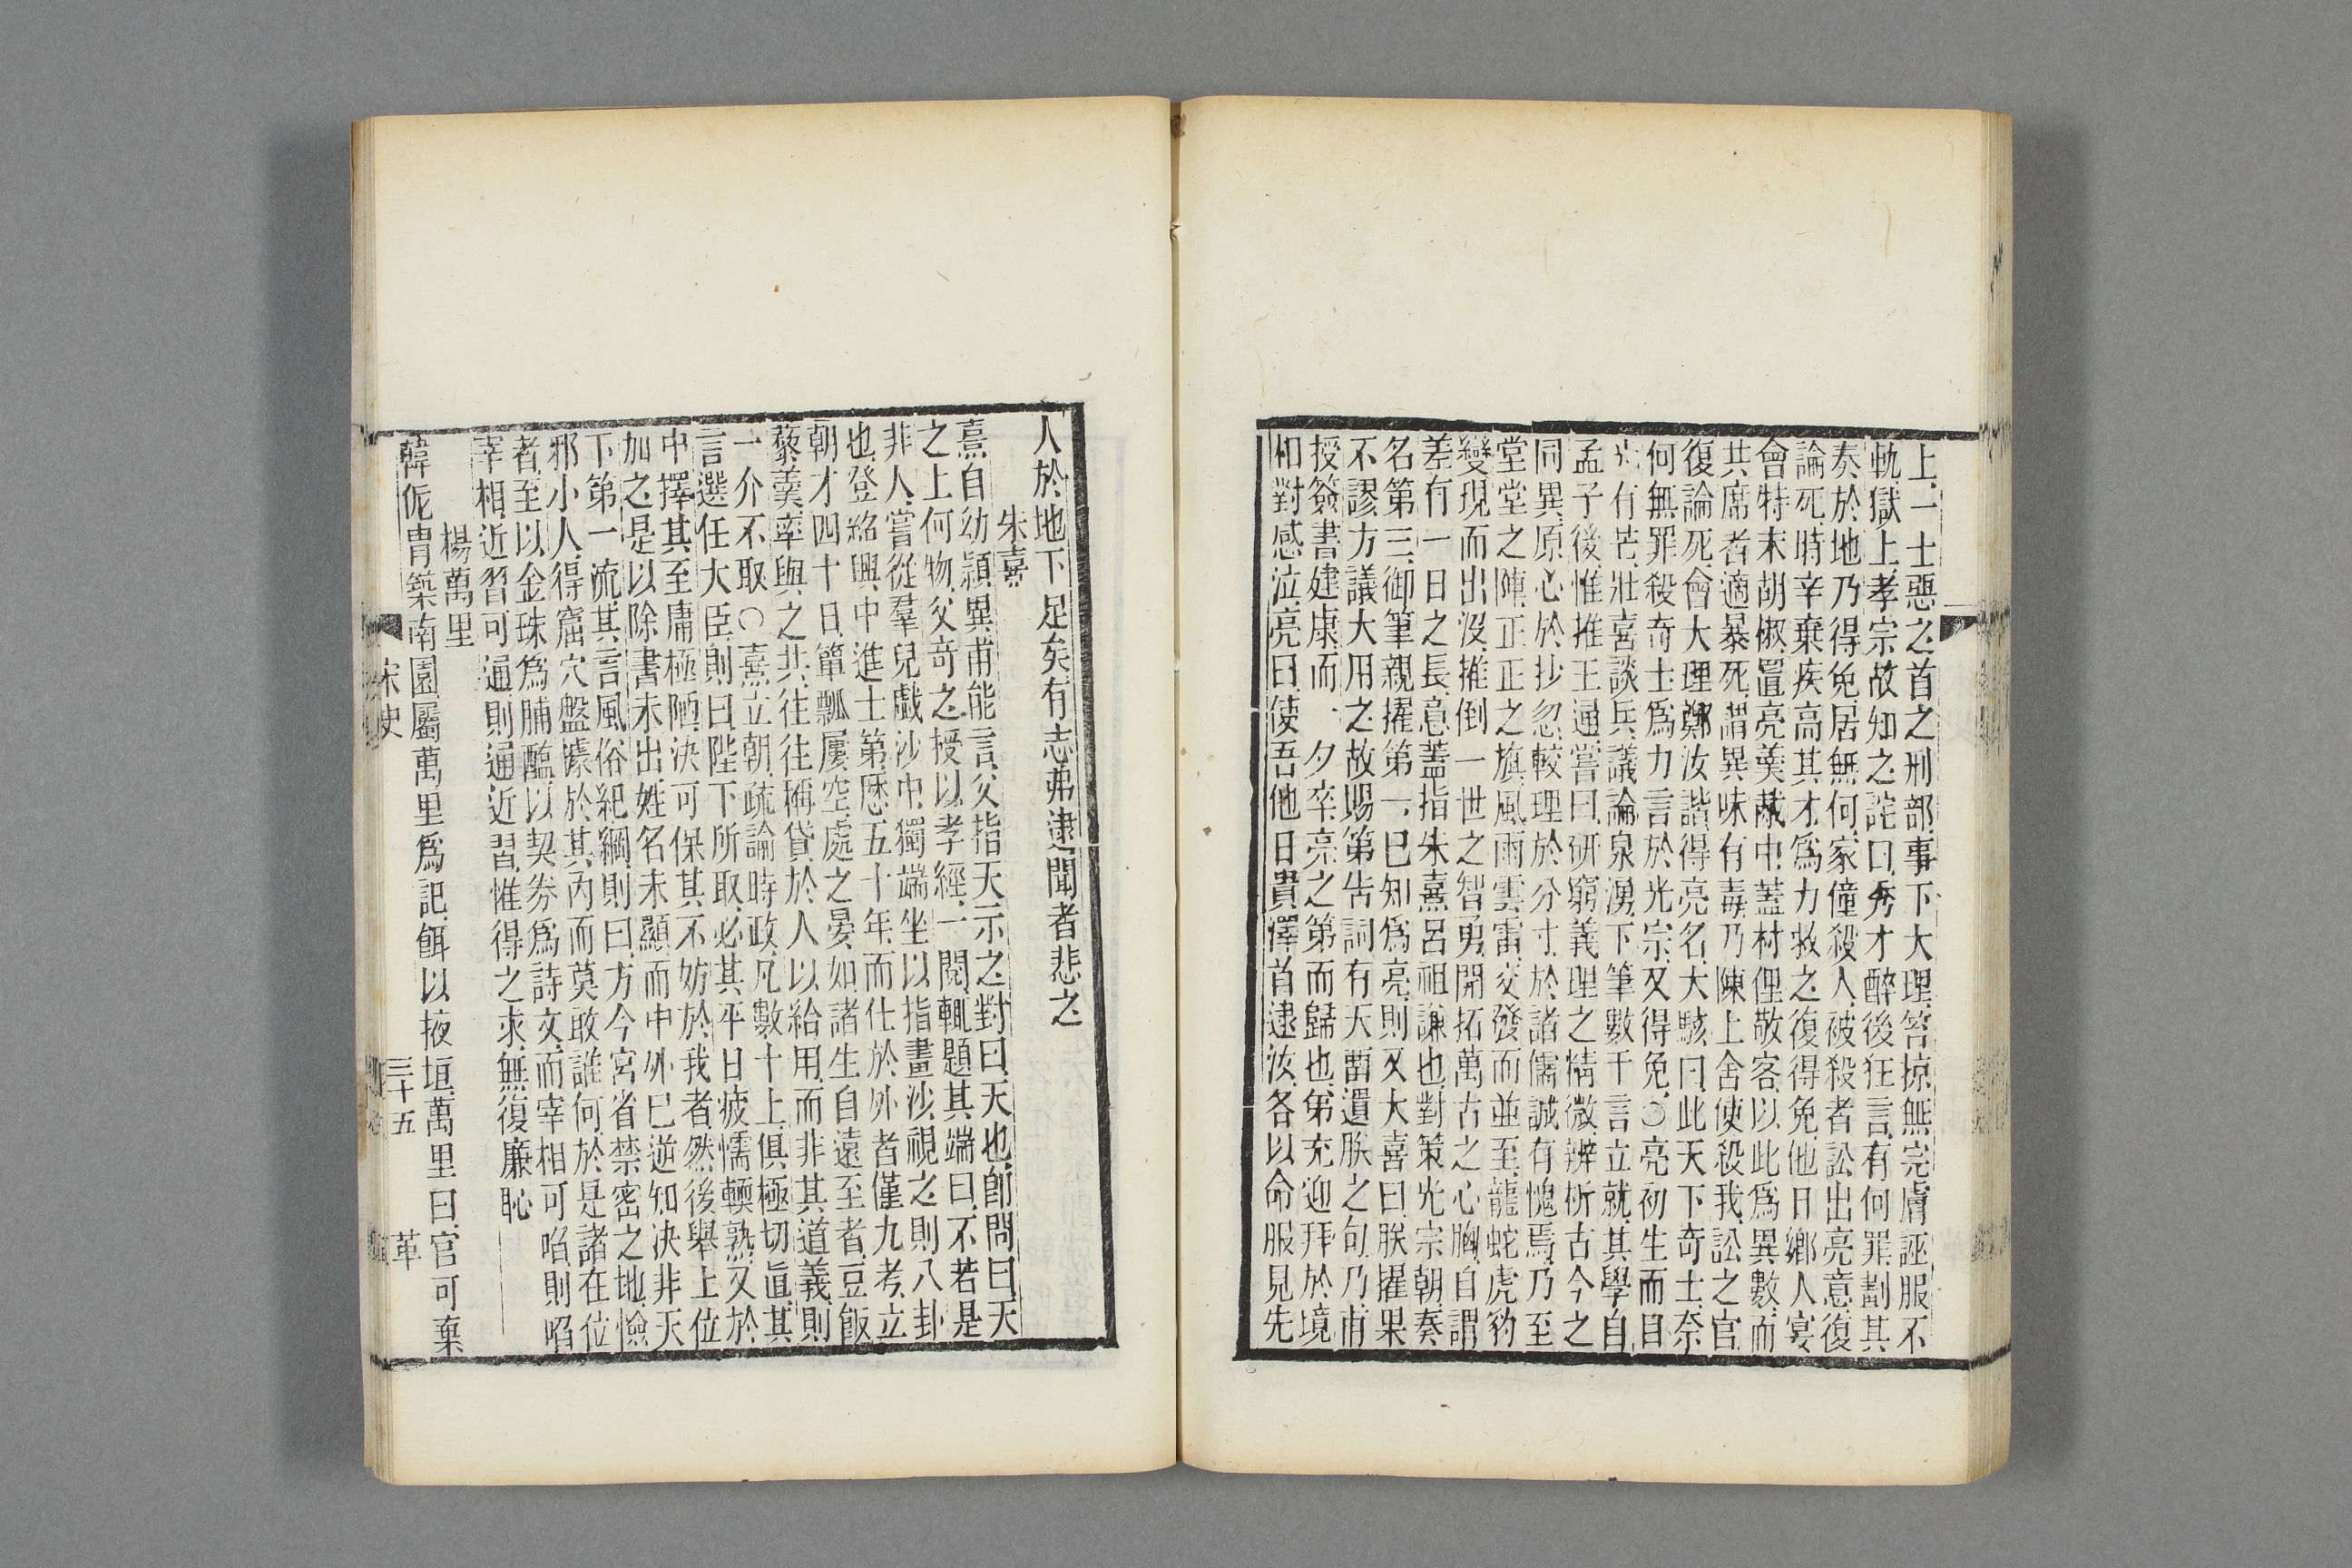 上一士惡之首之刑部事下大理笞掠無完膚誣服不
軌獄上孝宗故知之詫曰秀才醉後狂言有何罪劃其
奏於地乃得免居無何家僮殺人被殺者訟出亮意復
論死時辛棄疾高其才爲力救之復得免他日鄉人宴
會特末胡椒置亮羹胾中蓋村俚敬客以此爲異數而
共席者適暴死謂異味有毒乃陳上舍使殺我訟之官
復論死會大理鄭汝諧得亮名大駭曰此天下奇士奈
何無罪殺奇士爲力言於光宗又得免〇亮初生而目
光有芒壯喜談兵議論泉湧下筆數千言立就其學自
孟子後惟推王通嘗曰研窮義理之精微辨析古今之
同異原心於抄忽較理於分寸於諸儒誠有愧焉乃至
堂堂之陣正正之旗風雨雲雷交發而並至龍蛇虎豹
變現而出沒推倒一世之智勇開拓萬古之心胸自謂
差有一日之長意蓋指朱熹呂祖謙也對策光宗朝奏
名第三御筆親擢第一已知爲亮則又大喜曰朕擢果
不謬方議大用之故賜第告詞有天𠷔遺朕之句乃甫
授簽書建康而一夕卒亮之第而歸也弟充迎拜於境
相對感泣亮曰使吾他日貴澤首逮汝各以命服見先
人於地下足矣有志弗逮聞者悲之
朱熹
熹自幼穎異甫能言父指天示之對曰天也卽問曰天
之上何物父奇之授以孝經一閱輒題其端曰不若是
非人嘗從羣兒戲沙中獨端坐以指畫沙視之則八卦
也登紹興中進士第歷五十年而仕於外者僅九考立
朝才四十日簞瓢屢空處之晏如諸生自遠至者豆飯
藜羹率與之共往往稱貸於人以給用而非其道義則
一介不取〇熹立朝疏論時政凡數十上俱極切直其
言選任大臣則曰陛下所取必其平日疲懦輭熟又於
中擇其至庸極陋決可保其不妨於我者然後舉上位
加之是以除書未出姓名未顯而中外已逆知決非天
下第一流其言風俗紀綱則曰方今宮省禁密之地憸
邪小人得窟穴盤據於其內而莫敢誰何於是諸在位
者至以金珠爲脯醢以契券爲詩文而宰相可啗則啗
宰相近習可通則通近習惟得之求無復廉恥
楊萬里
韓侂冑築南園屬萬里爲記餌以掖垣萬里曰官可棄
宋史 三十五 革